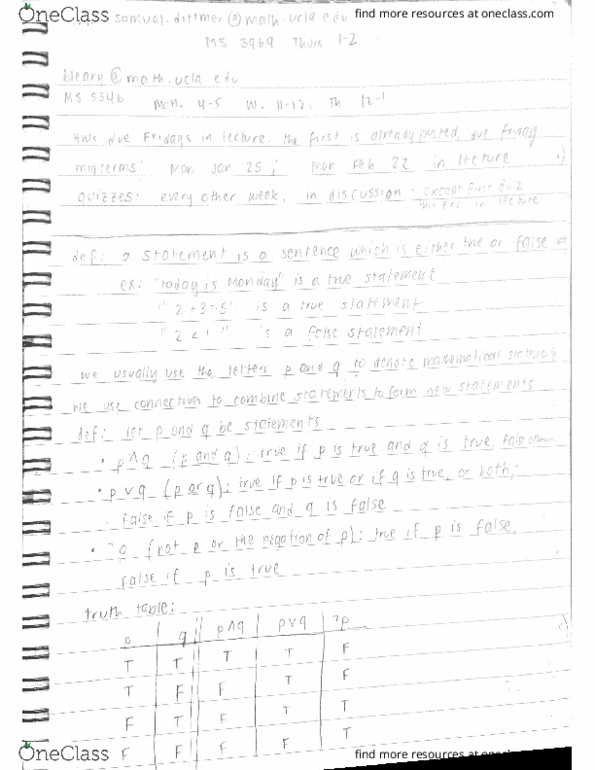 OneClass
find more resources at oneclass.com
samuel.dittmer@math.ucla edu
MS 3969 Thurs 1-2
bleary@math.ucla edu
MS 5346 Mon. 4-5 W. 11-12. Th 12-1
HWs due Fridays in lecture. the first is already posted, due Friday
midterms: Mon Jan 25; Mon Feb 22 in lecture
quizzes: every other week, in discussion - except first quiz
this Fri in lecture
def: a statement is a sentence which is either true or false
ex: "today is Monday" is a true statement
"2+3=5" is a true statement
"2<1" is a false statement
we usually use the letters p and q to denote mathematical
we use connectives to combine statements to form new statements
def: let p and q be statements
• p∧q (p and q): true if p is true and q is true, false
• p∨q (p or q): true if p is true or if q is true, or both;
false if p is false and q is false
• (not p or the negation of p): true if p is false,
false if p is true
truth table:
p q p∧q p∨q ¬p
T T T T F
T F F T F
F T F T T
F F F F T
OneClass
find more resources at oneclass.com